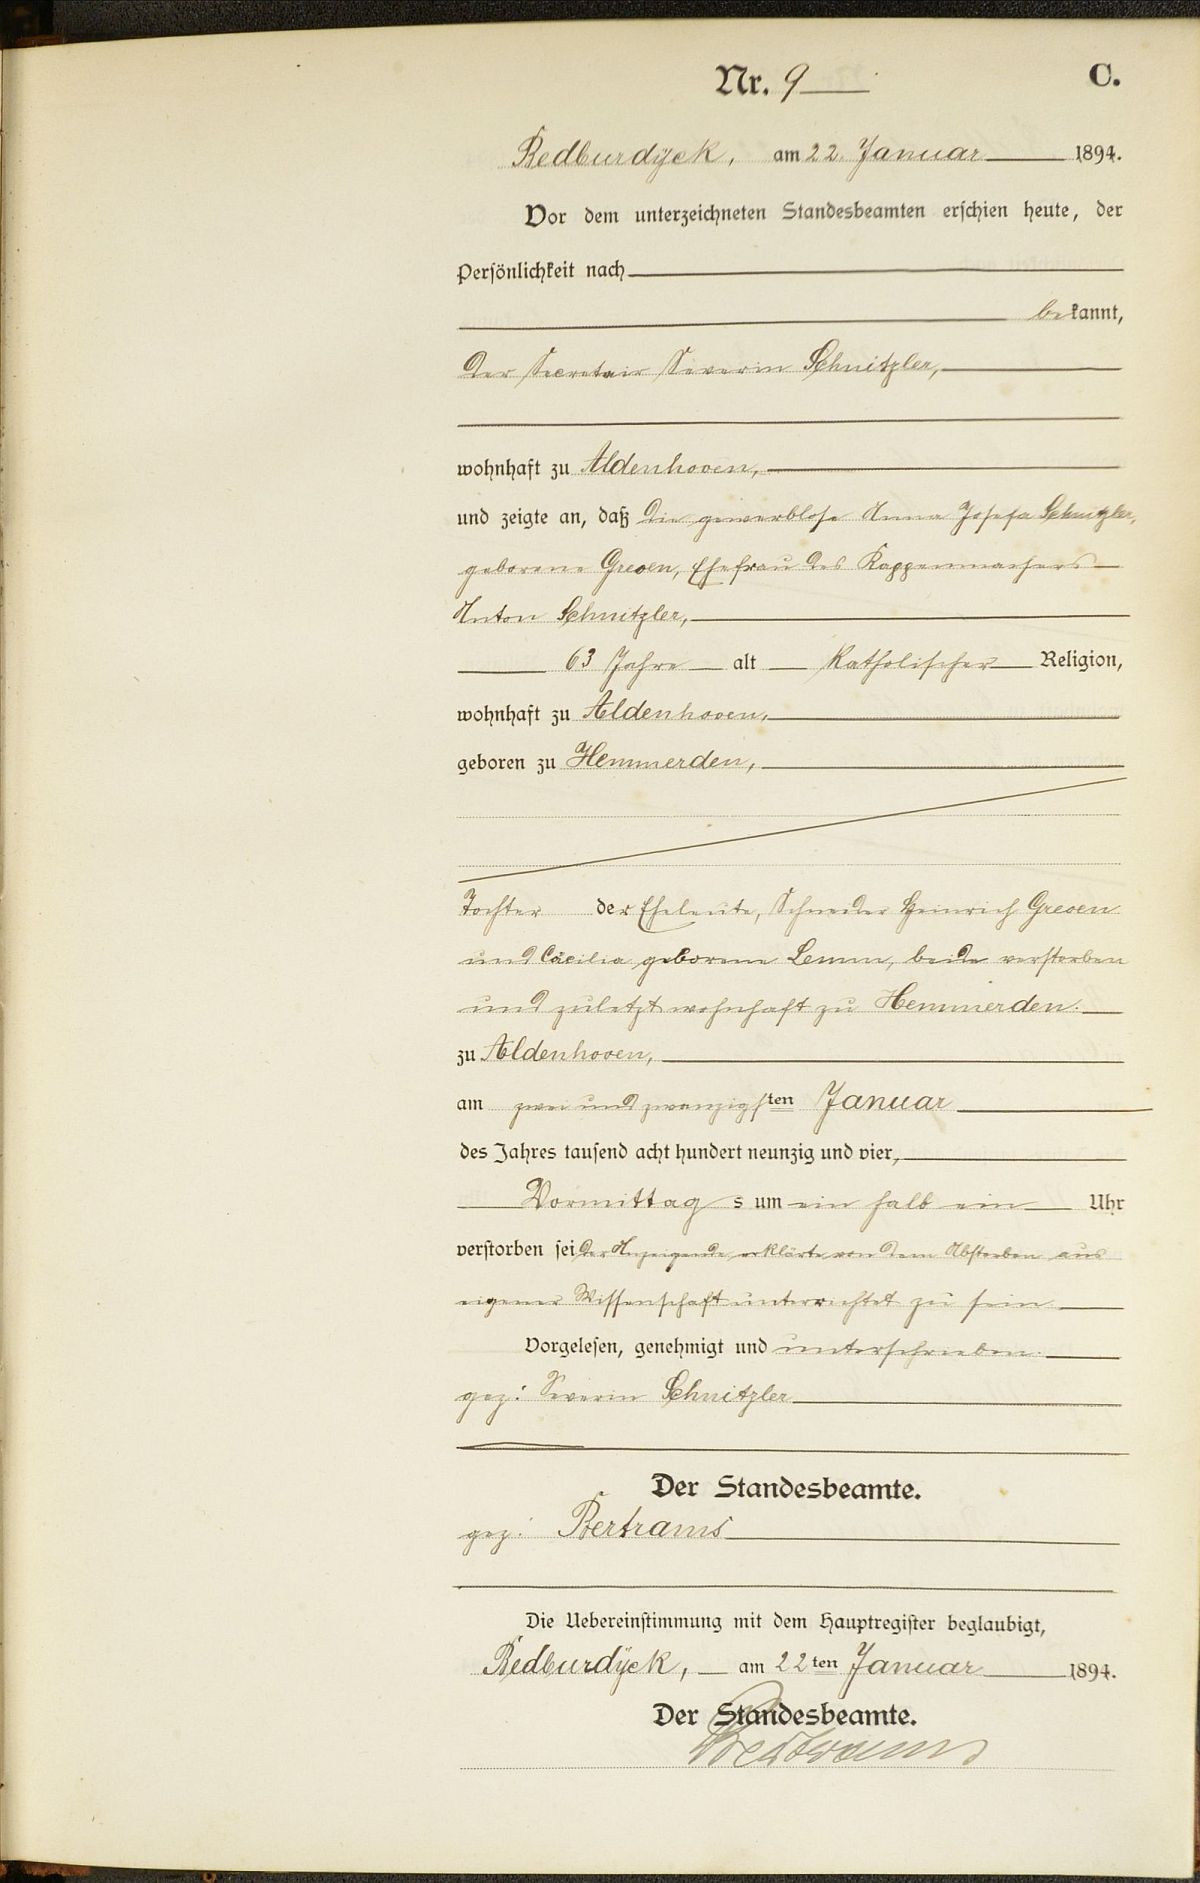 Nr. 9 C.
Bedburdÿck, am 22. Januar 1894.
Vor dem unterzeichneten Standesbeamten erschien heute, der
Persönlichkeit nach
bekannt,
der Secretair Severin Schnitzler,
wohnhaft zu Aldenhoven,
und zeigte an, daß die gewerblose Anna Josefa Schnitzler,
geborene Greven, Ehefrau des Kappenmachers
Anton Schnitzler,
63 Jahre alt katholischer Religion,
wohnhaft zu Aldenhoven,
geboren zu Hemmerden,
Tochter der Eheleute, Schneider Heinrich Greven
und Cäcilia geborene Lemm, beide verstorben
und zuletzt wohnhaft zu Hemmerden.
zu Aldenhoven,
am zwei und zwanzigsten Januar
des Jahres tausend acht hundert neunzig und vier,
Vormittags um ein halb ein Uhr
verstorben sei der Anzeigende erklärte von dem Absterben aus
eigener Wissenschaft unterrichtet zu sein
Vorgelesen, genehmigt und unterschrieben.
gez: Severin Schnitzler
Der Standesbeamte.
gez: Bertrams
Die Uebereinstimmung mit dem Hauptregister beglaubigt,
Bedburdÿck, am 22ten Januar 1894.
Der Standesbeamte.
Bertrams